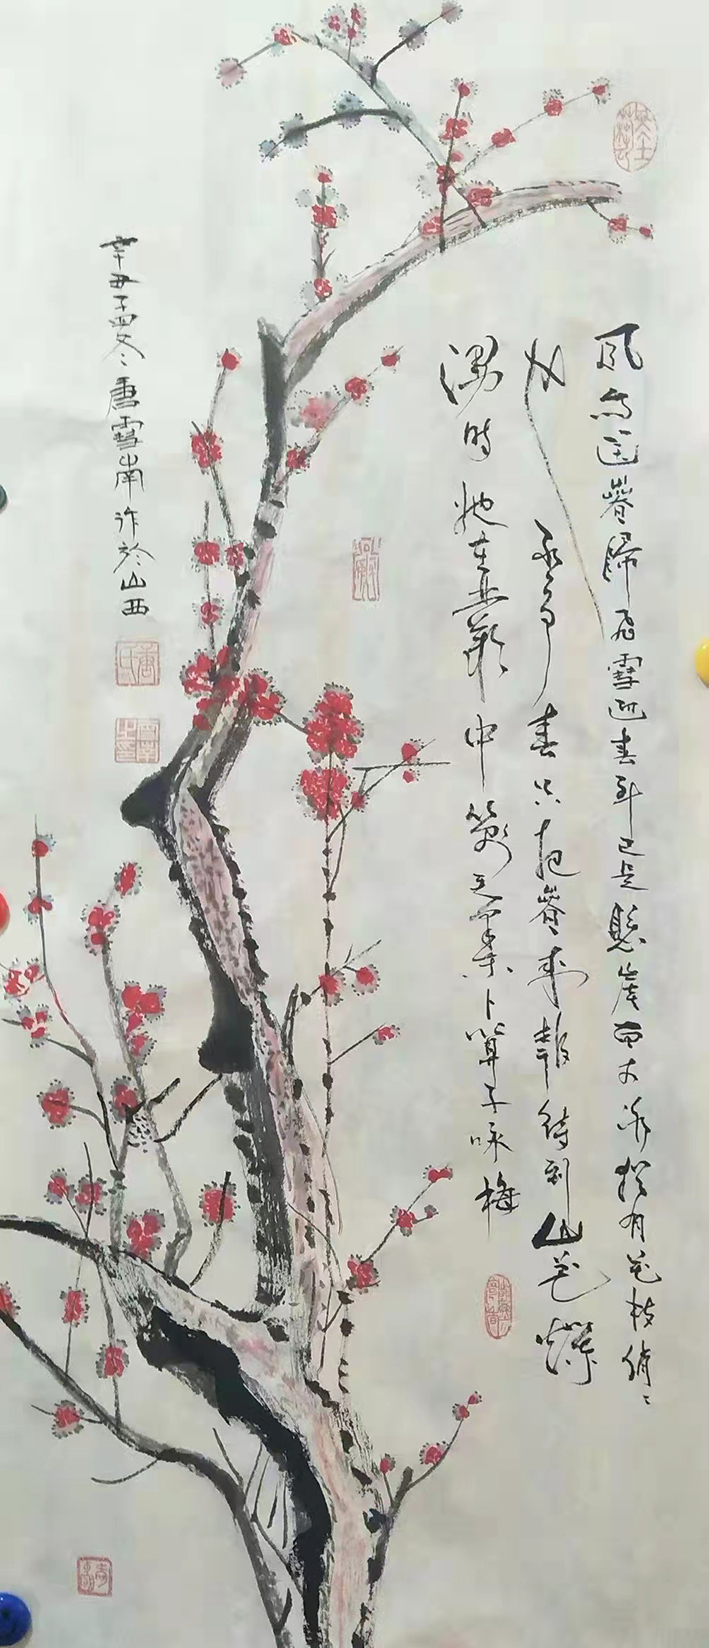 風雨送萅歸飛雪迎春到已是懸崖百丈冰犹有花枝俏〻
也不争春只把萅来報待到山花爛
漫時她在叢中笑卜算子咏梅
辛丑孟冬唐雪南作於山西